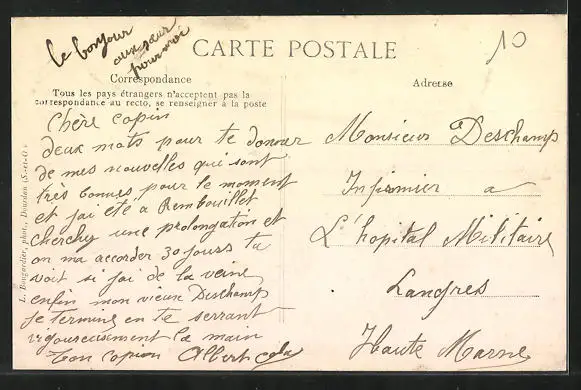 le bonjour
aux sœur
pour moi
10
CARTE POSTALE
Correspondance
Tous les pays étrangers n'acceptent pas la
correspondance au recto, se renseigner à la poste
Adresse
Chère copin
deux mots pour te donner
de mes nouvelles qui sont
très bonnes pour le moment
et j'ai été a Rembouillet
cherchy une prolongation et
on ma accorder 30 jours tu
voit si j'ai de la veine
enfin mon vieux Deschamp
je termine en te serrant
vigoureusement la main
ton copion Albert
Monsieur Deschamp
Infirmier a
L'hopital Militaire
Langres
Haute Marne
L. Bougardier, phot., Dourdan (S.-et-O.)